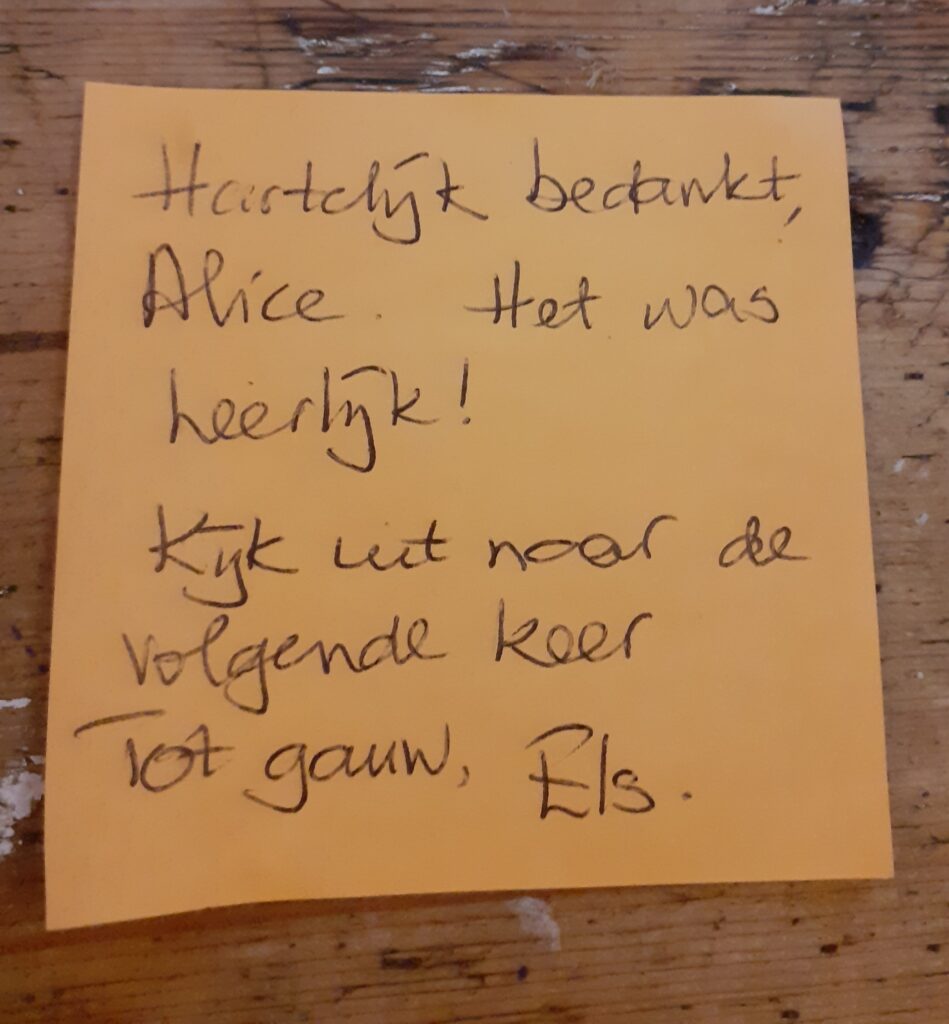 Hartelijk bedankt,
Alice. Het was
heerlijk!
Kijk uit naar de
volgende keer
Tot gauw, Els.